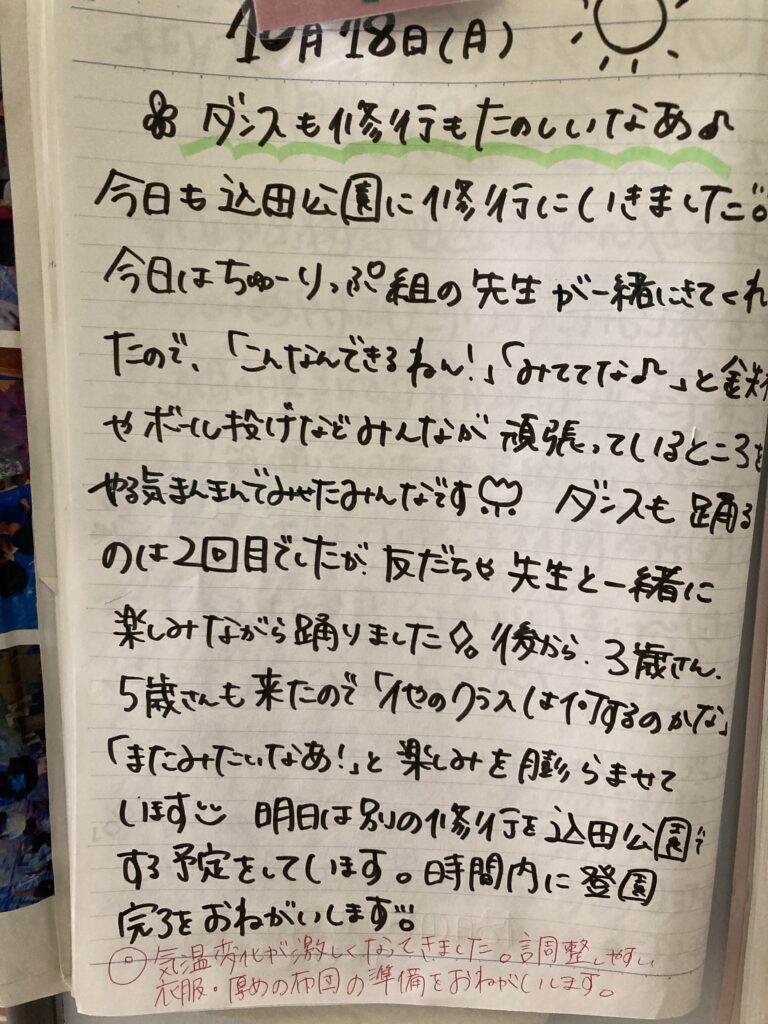 10月18日(月)
ダンスも修行もたのしいなあ♪
今日も込田公園に修行にいきました。
今日はちゅーりっぷ組の先生が一緒にきてくれ
たので、「こんなんできるねん!」「みててな♪」と鉄
やボール投げなどみんなが頑張っているところを
やる気まんまんでみせたみんなです ダンスも踊る
のは2回目でしたが、友だちや先生と一緒に
楽しみながら踊りました。後から、3歳さん、
5歳さんも来たので「他のクラスは何するのかな」
「またみたいなあ!」と楽しみを膨らませて
います 明日は別の修行を込田公園で
する予定をしています。時間内に登園
完了をおねがいします。
気温変化が激しくなってきました。調整しやすい
衣服・厚めの布団の準備をおねがいします。